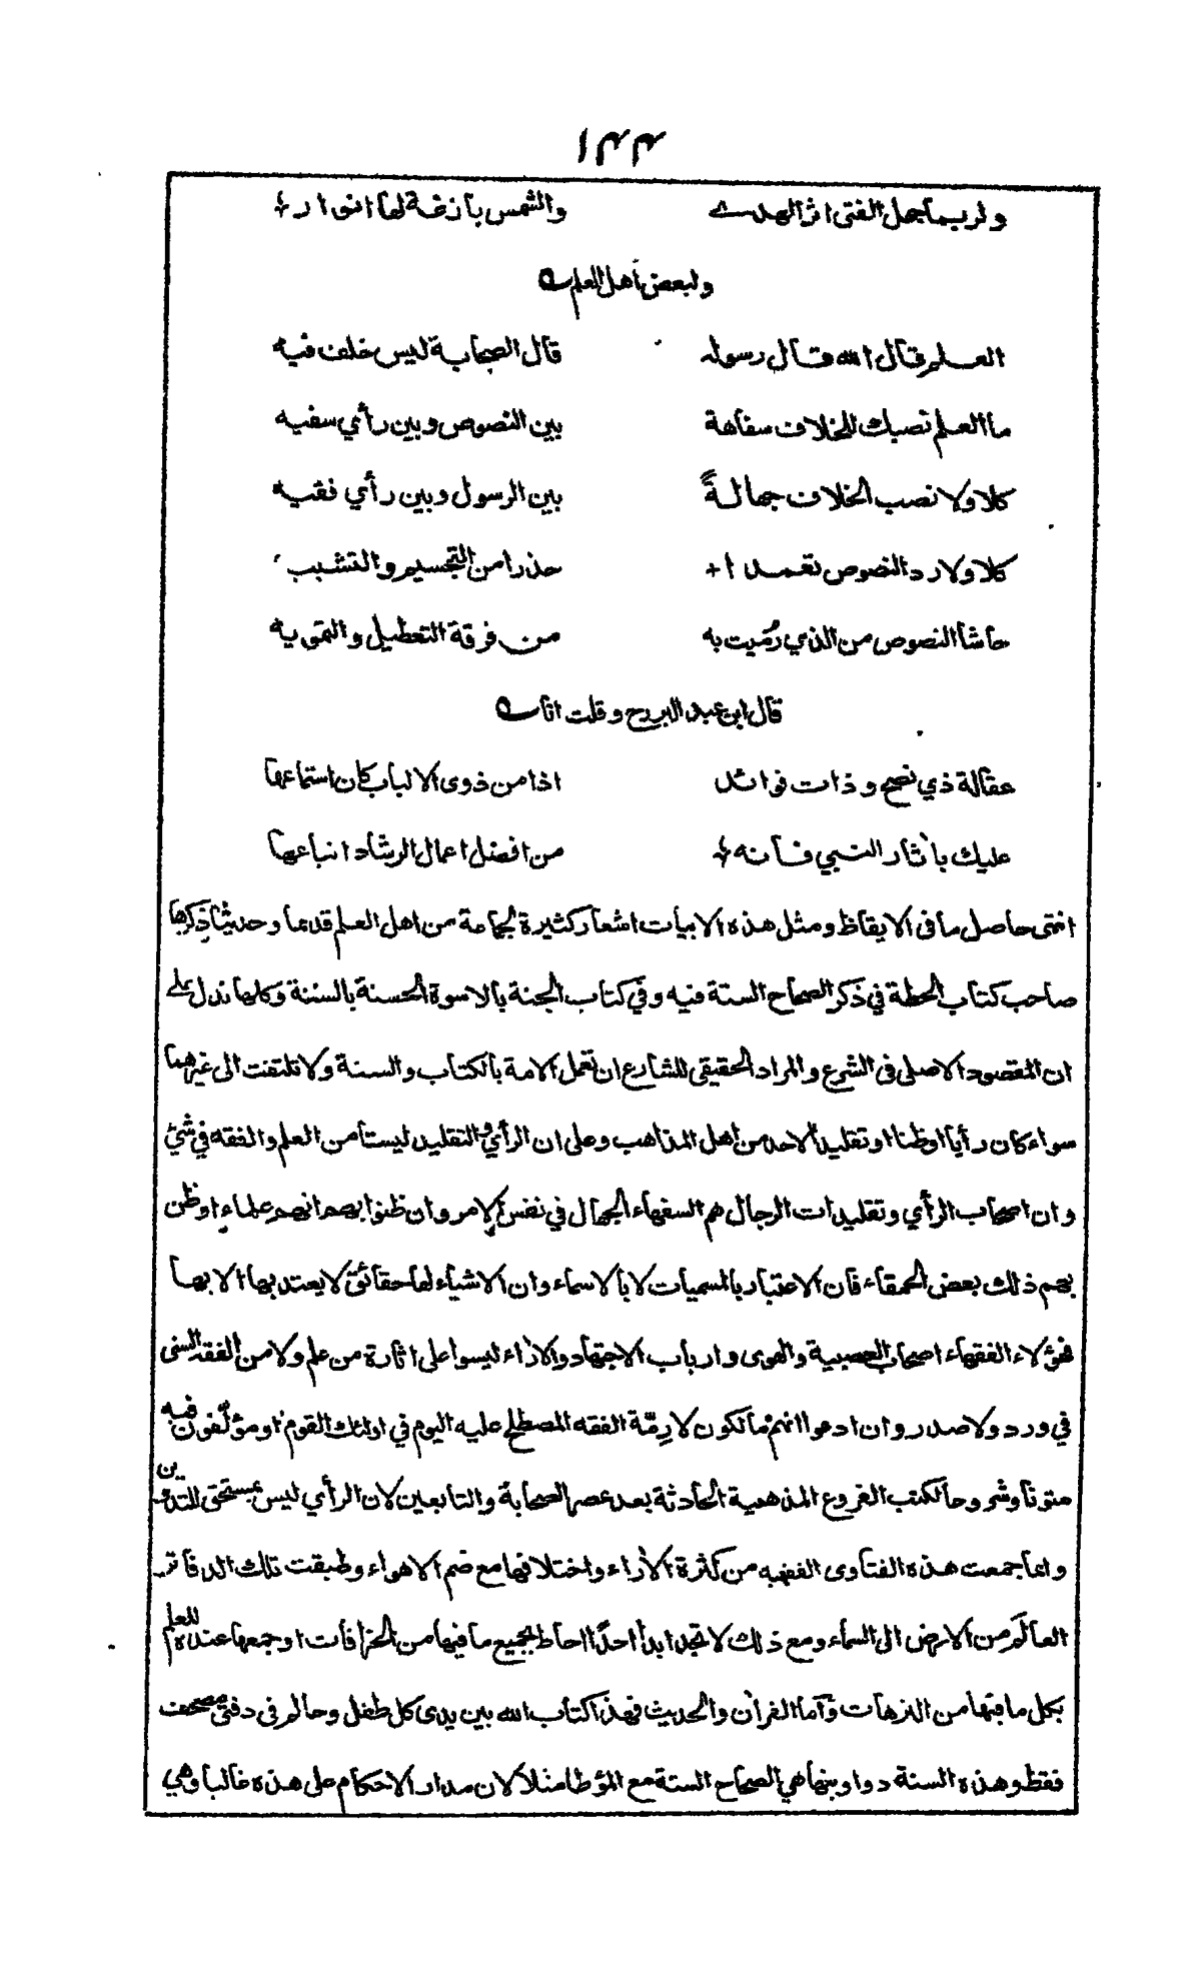 ١٣٣
ولربما جهل الفتى اثر الهدے والشمس بازغة لها انوار
ولبعض اهل العلم
العلم قال الله قال رسوله قال الصحابة ليس خلف فيه
ما العلم نصبك للخلاف سفاهة بين النصوص وبين رأي سفيه
كلا ولا نصب الخلاف جهالةً بين الرسول وبين رأي فقيه
كلا ولا رد النصوص تعمدا حذرا من التجسيم والتشبيه
حاشا النصوص من الذي رُميت به من فرقة التعطيل والتمويه
قال ابن عبد البر رح وقلت انا
مقالة ذي نصح وذات فوائد اذا من ذوى الالباب كان استماعها
عليك بآثار النبي فانه من افضل اعمال الرشاد اتباعها
انتهى حاصل ما فى الايقاظ ومثل هذه الابيات اشعار كثيرة لجماعة من اهل العلم قديما وحديثا ذكرها
صاحب كتاب الحطة في ذكر الصحاح الستة فيه وفي كتاب الجنة بالاسوة الحسنة بالسنة وكلها تدل على
ان المقصود الاصلى فى الشرع والمراد الحقيقى للشارع ان تعمل الامة بالكتاب والسنة ولا تلتفت الى غيرهما
سواء كان رأيا او ظنا او تقليدا لاحد من اهل المذاهب وعلى ان الرأي والتقليد ليستا من العلم والفقه في شئ
وان اصحاب الرأي وتقليدات الرجال هم السفهاء الجهال في نفس الامر وان ظنوا بهم انهم علماء او ظن
بهم ذلك بعض الحمقاء فان الاعتبار بالمسميات لا بالاسماء وان الاشياء لها حقائق لا يعتد بها الا بها
فهؤلاء الفقهاء اصحاب العصبية والهوى وارباب الاجتهاد والآراء ليسوا على اثارة من علم ولا من الفقه السنى
في ورد ولا صدر وان ادعوا انهم مالكون لازِمّة الفقه المصطلح عليه اليوم في اولئك القوم او مؤلفون فيه
متونا وشروحا لكتب الفروع المذهبية الحادثة بعد عصر الصحابة والتابعين لان الرأي ليس بمستحق للتدوين
وانما جمعت هذه الفتاوى الفقهيه من كثرة الآراء واختلافها مع ضم الاهواء وطبقت تلك الدفاتر
العالَم من الارض الى السماء ومع ذلك لا تجد ابدا احدًا احاط بجميع ما فيها من الخرافات او جمعها عنده للعلم
بكل ما فيها من النزهات وآما القرآن والحديث فهذا كتاب الله بين يدى كل طفل وحالم فى دفتى مصحف
فقط وهذه السنة دواوينها هي الصحاح الستة مع المؤطا مثلا لان مدار الاحكام على هذه غالبا وهي